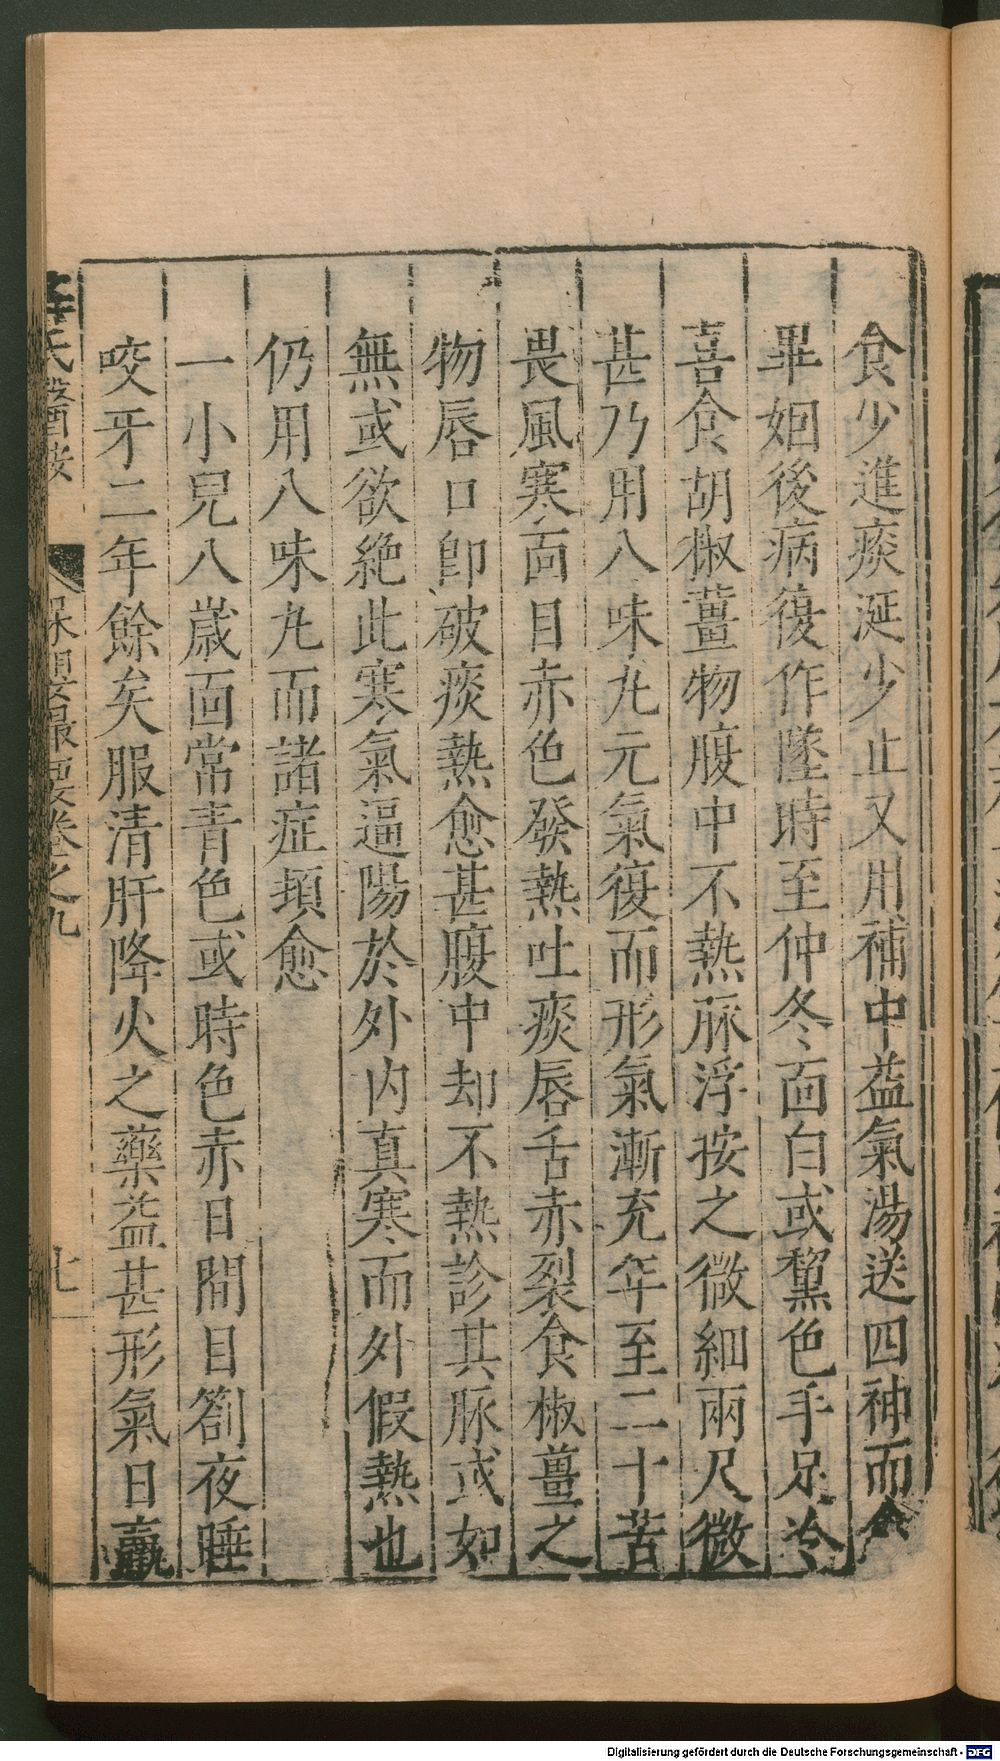 食少進痰涎少止又用補中益氣湯送四神而全
畢姻後病復作墜時至仲冬面白或黧色手足冷
喜食胡椒薑物腹中不熱脉浮按之微細兩尺微
甚乃用八味丸元氣復而形氣漸充年至二十苦
畏風寒面目赤色發熱吐痰唇舌赤裂食椒薑之
物唇口卽破痰熱愈甚腹中却不熱診其脉或如
無或欲絶此寒氣逼陽於外内真寒而外假熱也
仍用八味丸而諸症頓愈
一小兒八歲面常青色或時色赤日間目劄夜睡
咬牙二年餘矣服清肝降火之藥益甚形氣日羸
薛氏醫按 保嬰撮要卷之九 七
Digitalisierung gefördert durch die Deutsche Forschungsgemeinschaft - DFG